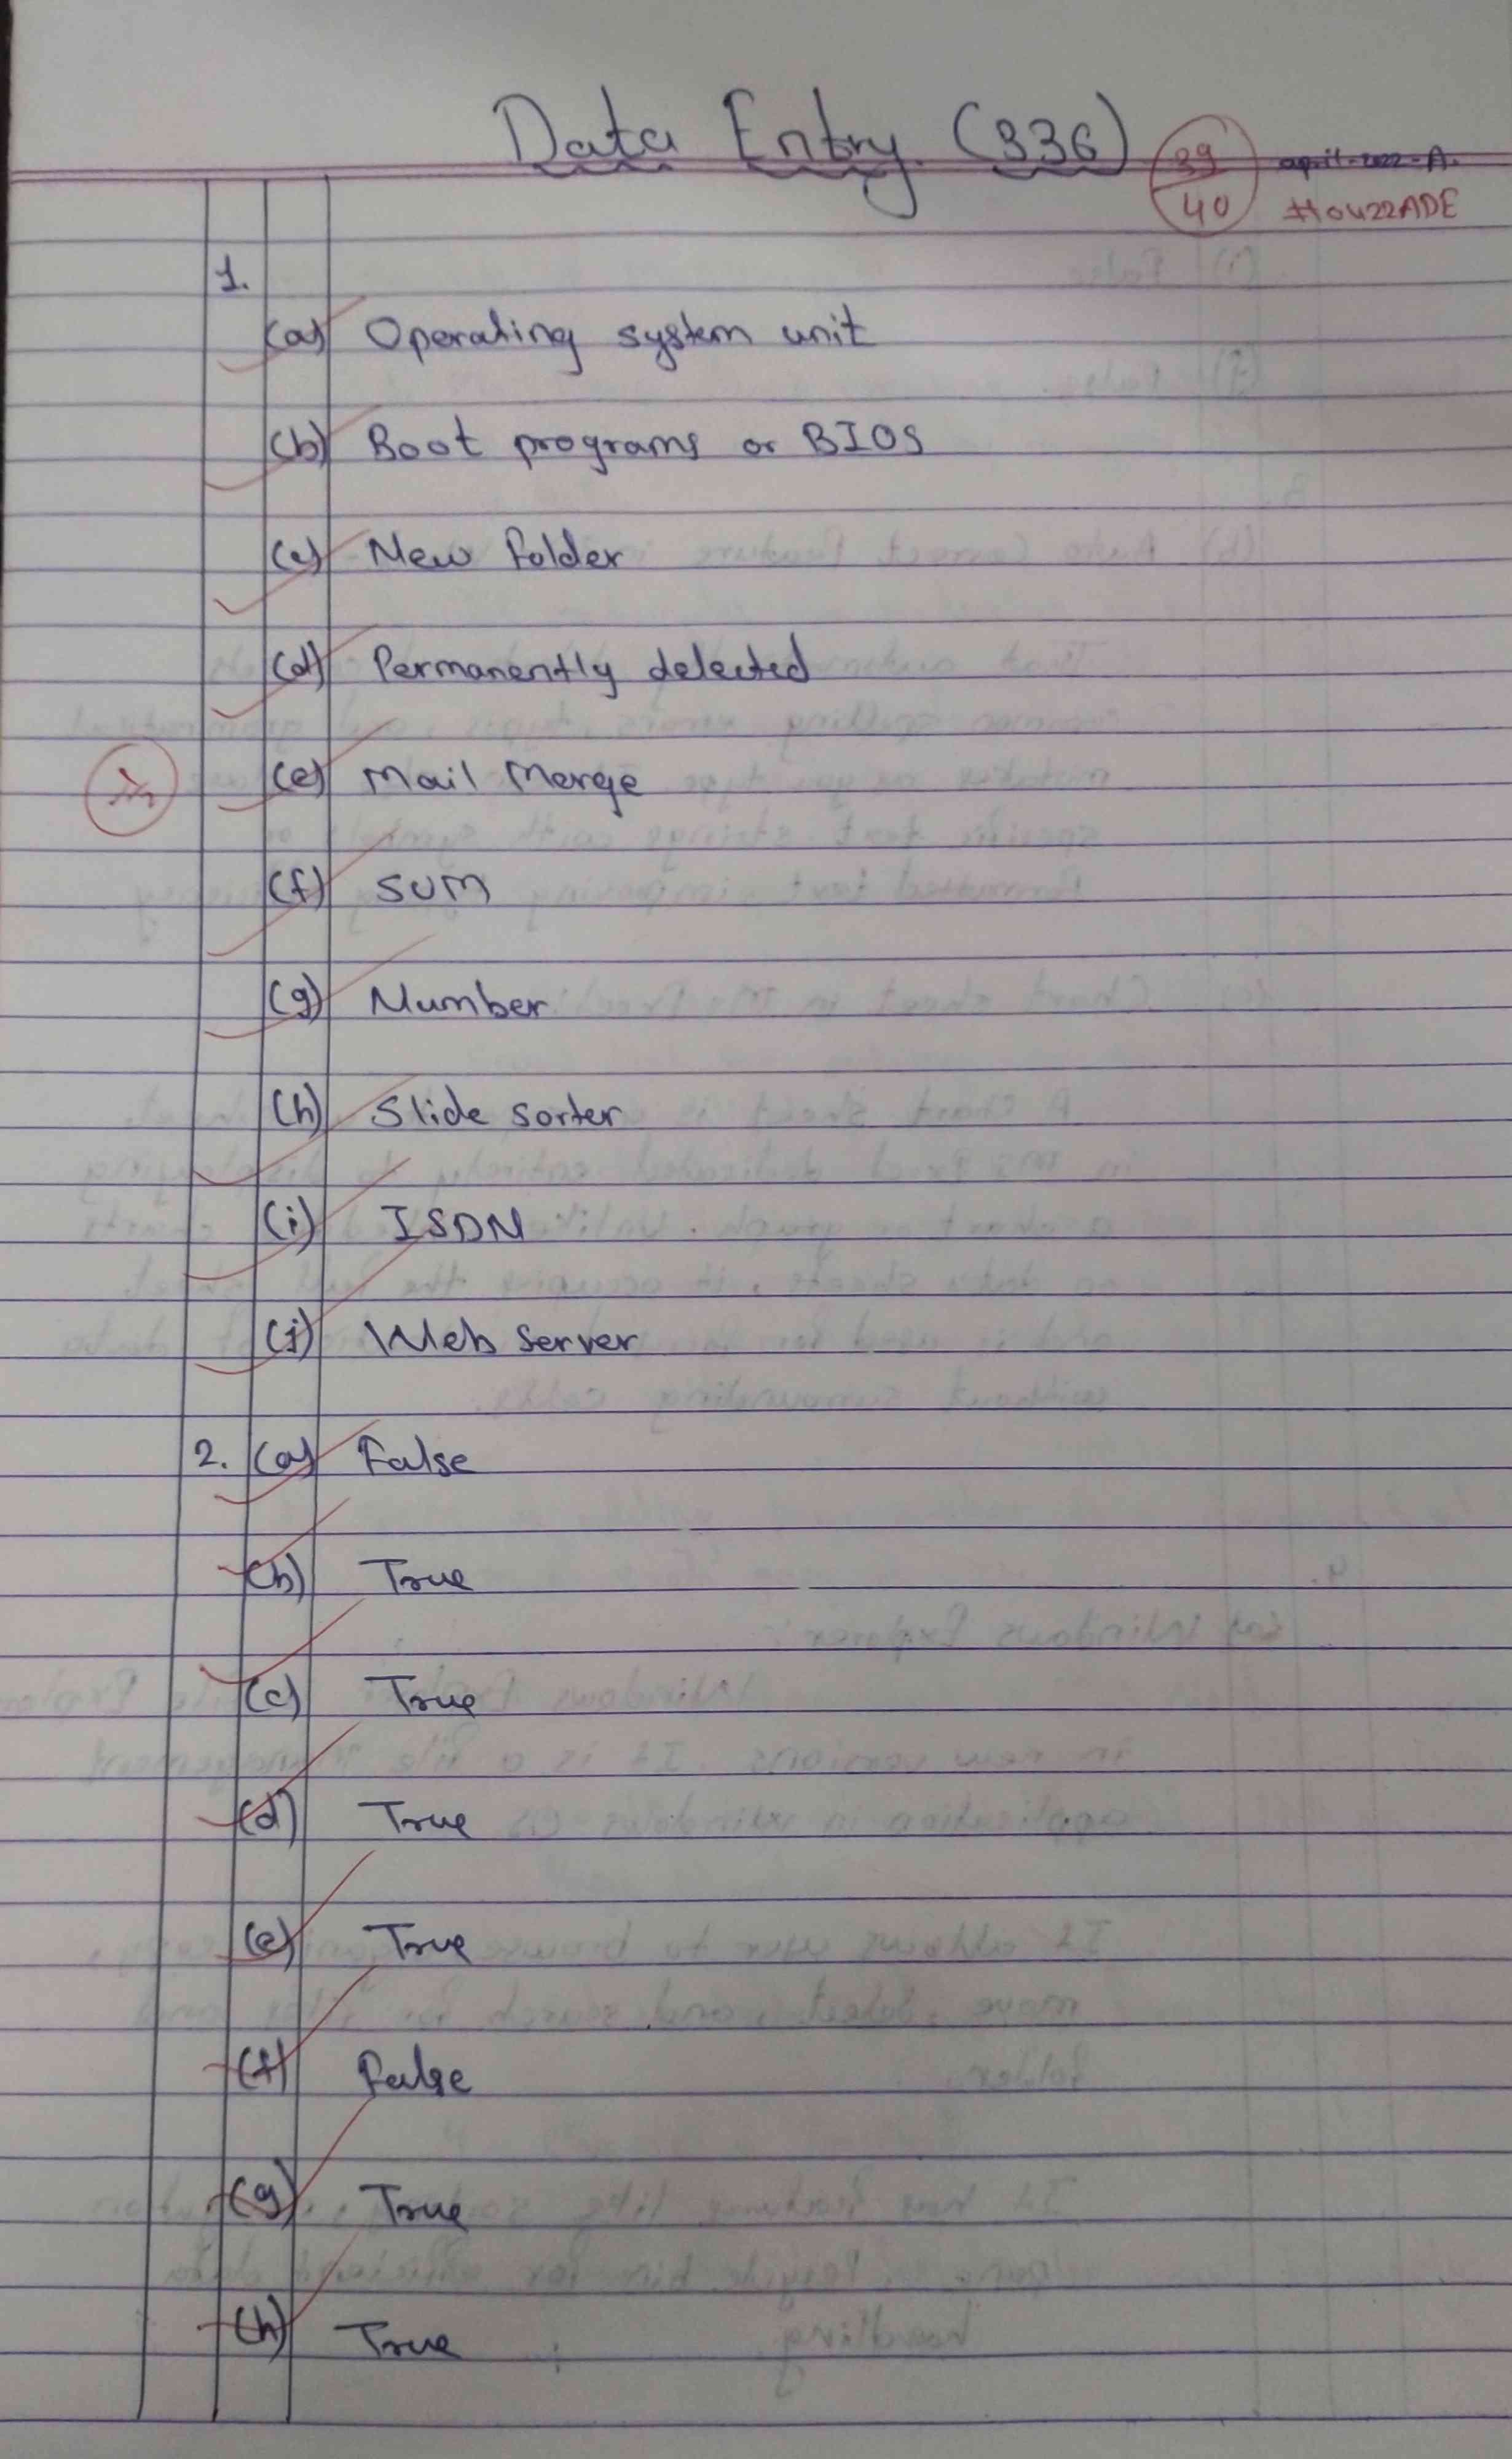 Data Entry (336)
39
40
april-2022-A.
#0422ADE
1.
(a) Operating system unit
(b) Boot programs or BIOS
(c) New folder
(d) Permanently delected
(e) Mail Merge
(f) SUM
(g) Number
(h) Slide sorter
(i) ISDN
(j) Web Server
2. (a) False
(b) True
(c) True
(d) True
(e) True
(f) False
(g) True
(h) True